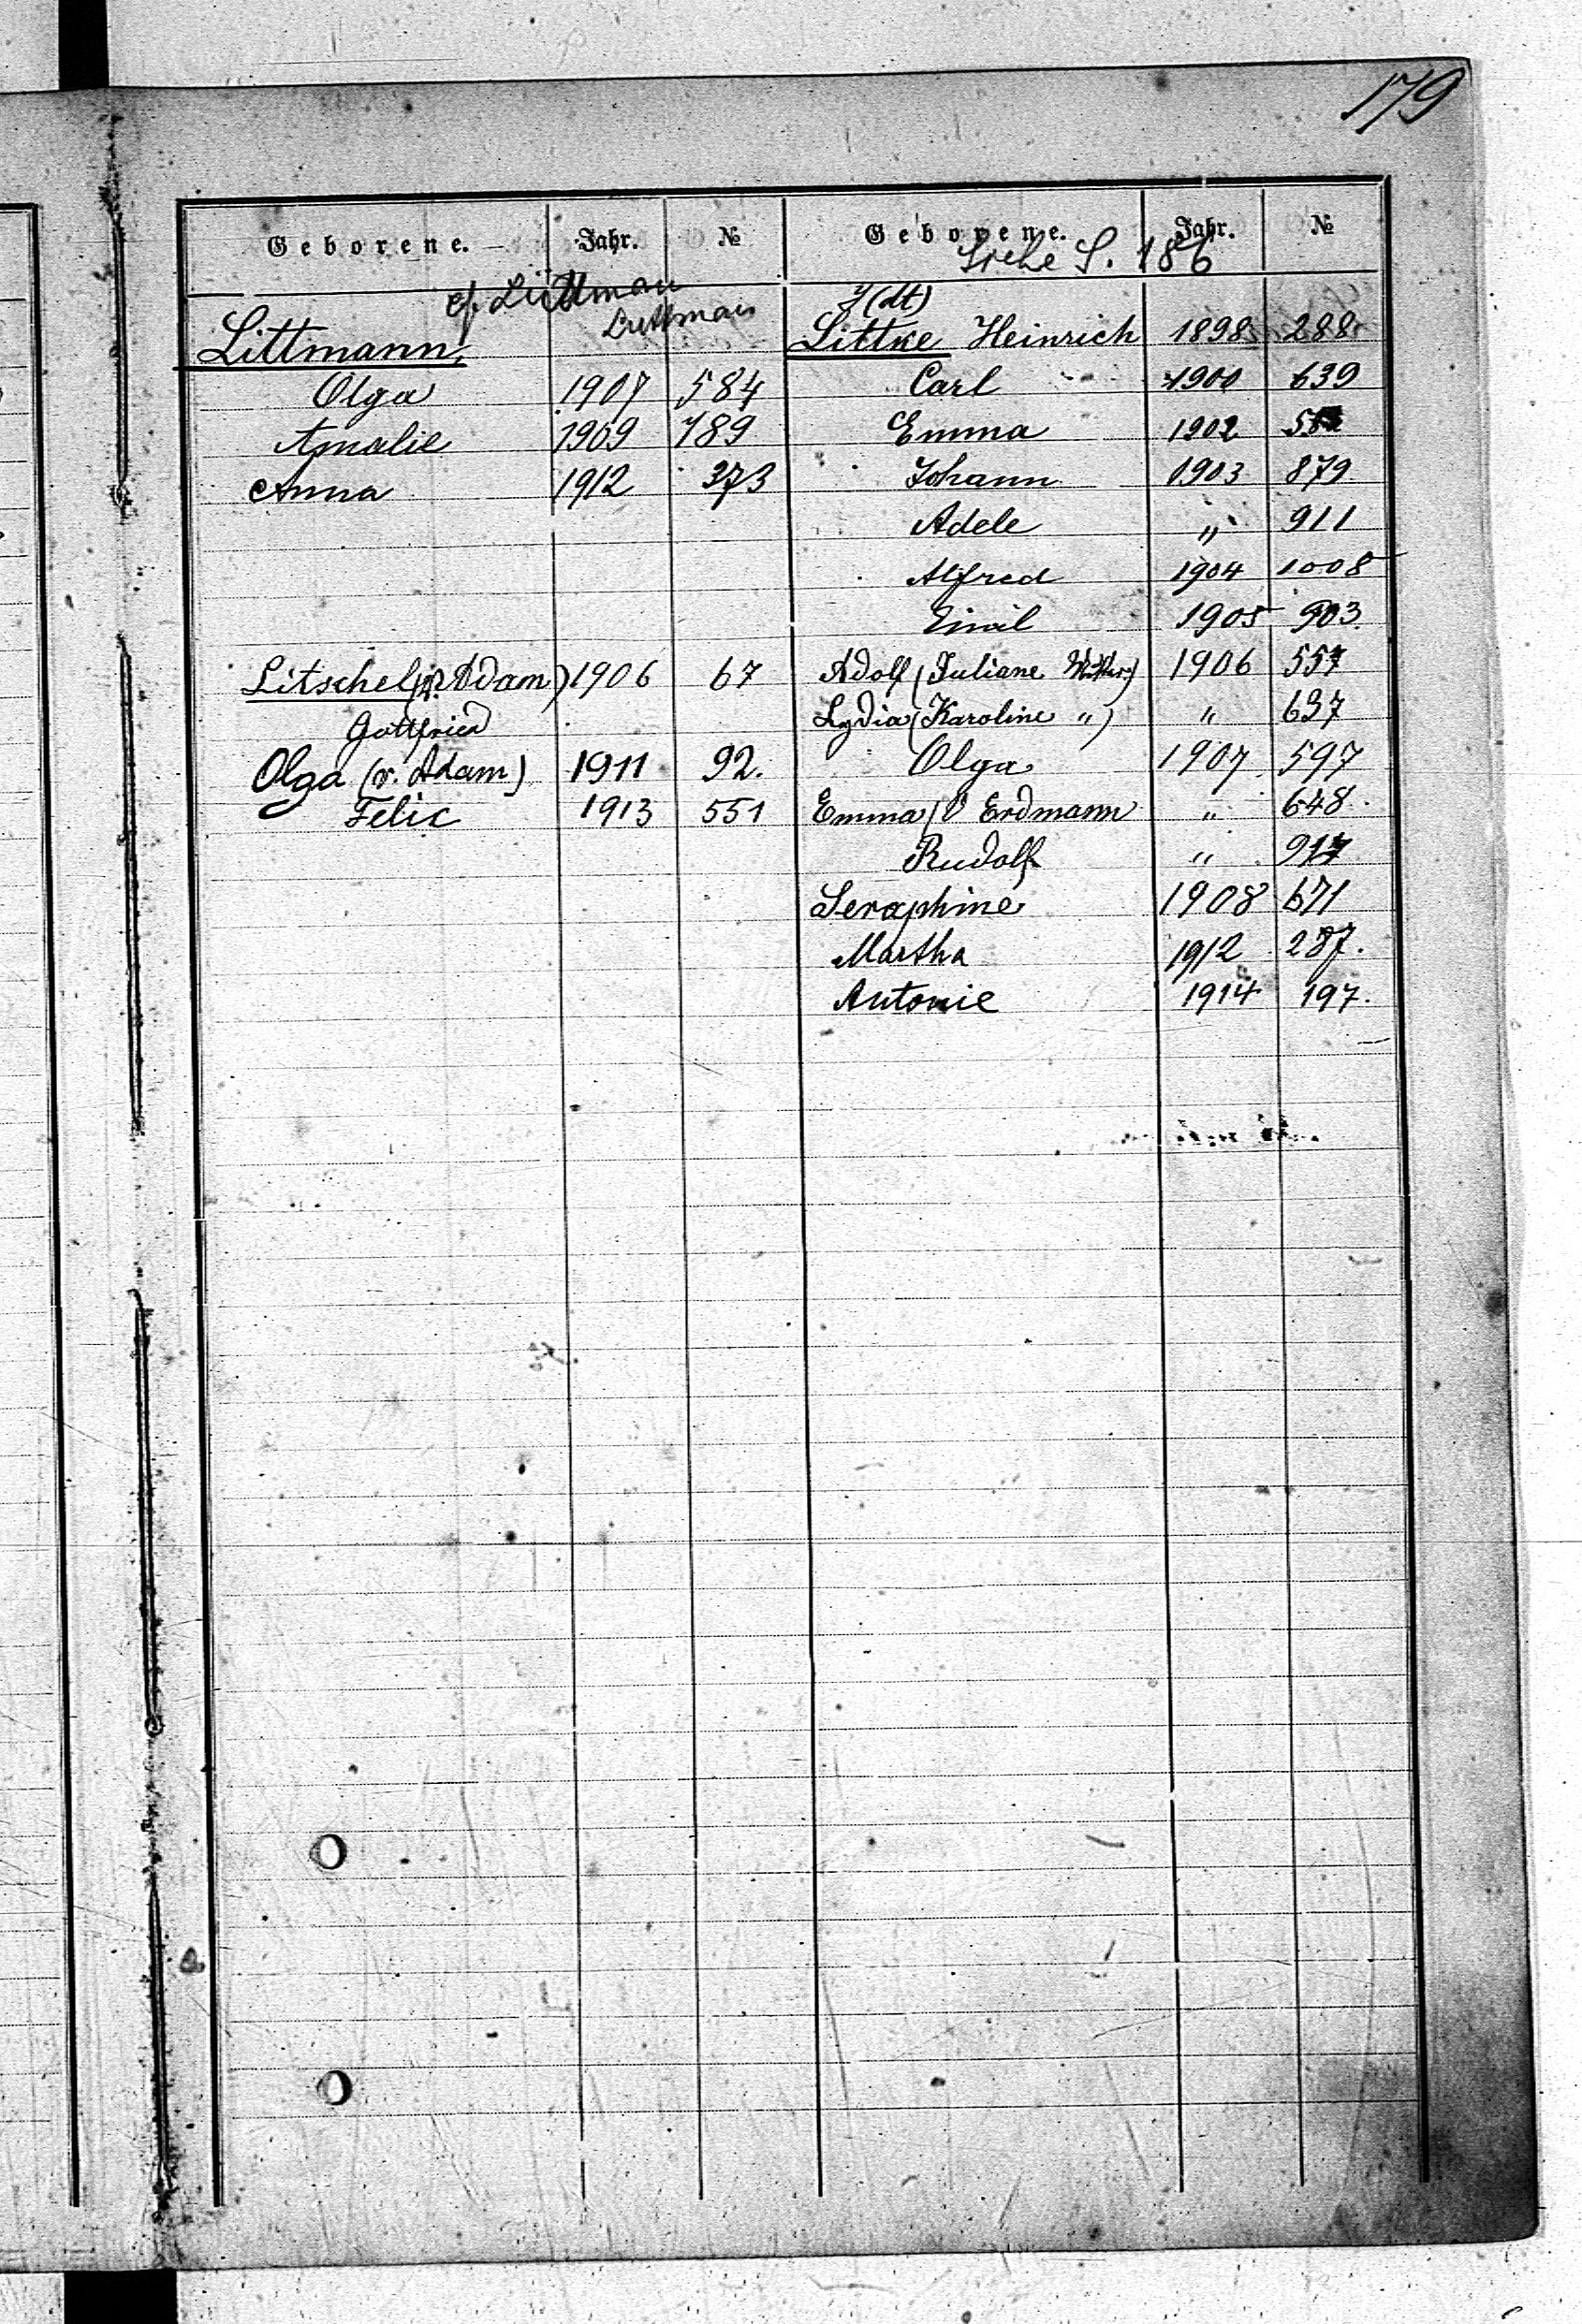 179
Geborene. Jahr. №
cf Lüttman
Luttman
Littmann,
Olga 1907 584
Amalie 1909 789
Anna 1912 373
Litschel (v. Adam) 1906 67
Gottfried
Olga (v. Adam) 1911 92.
Felic 1913 551
Geborene. Jahr. №
Siehe S. 186
y (dt)
Littke Heinrich 1898 288
Carl 1900 639
Emma 1902
Johann 1903 879
Adele " 911
Alfred 1904 1008
Emil 1905 903.
Adolf (Juliane 1906 557
Lydia (Karoline ") " 637
Olga 1907 597
Emma / V Erdmann " 648.
Rudolf " 917
Seraphine 1908 671
Martha 1912 287.
Antonie 1914 197.